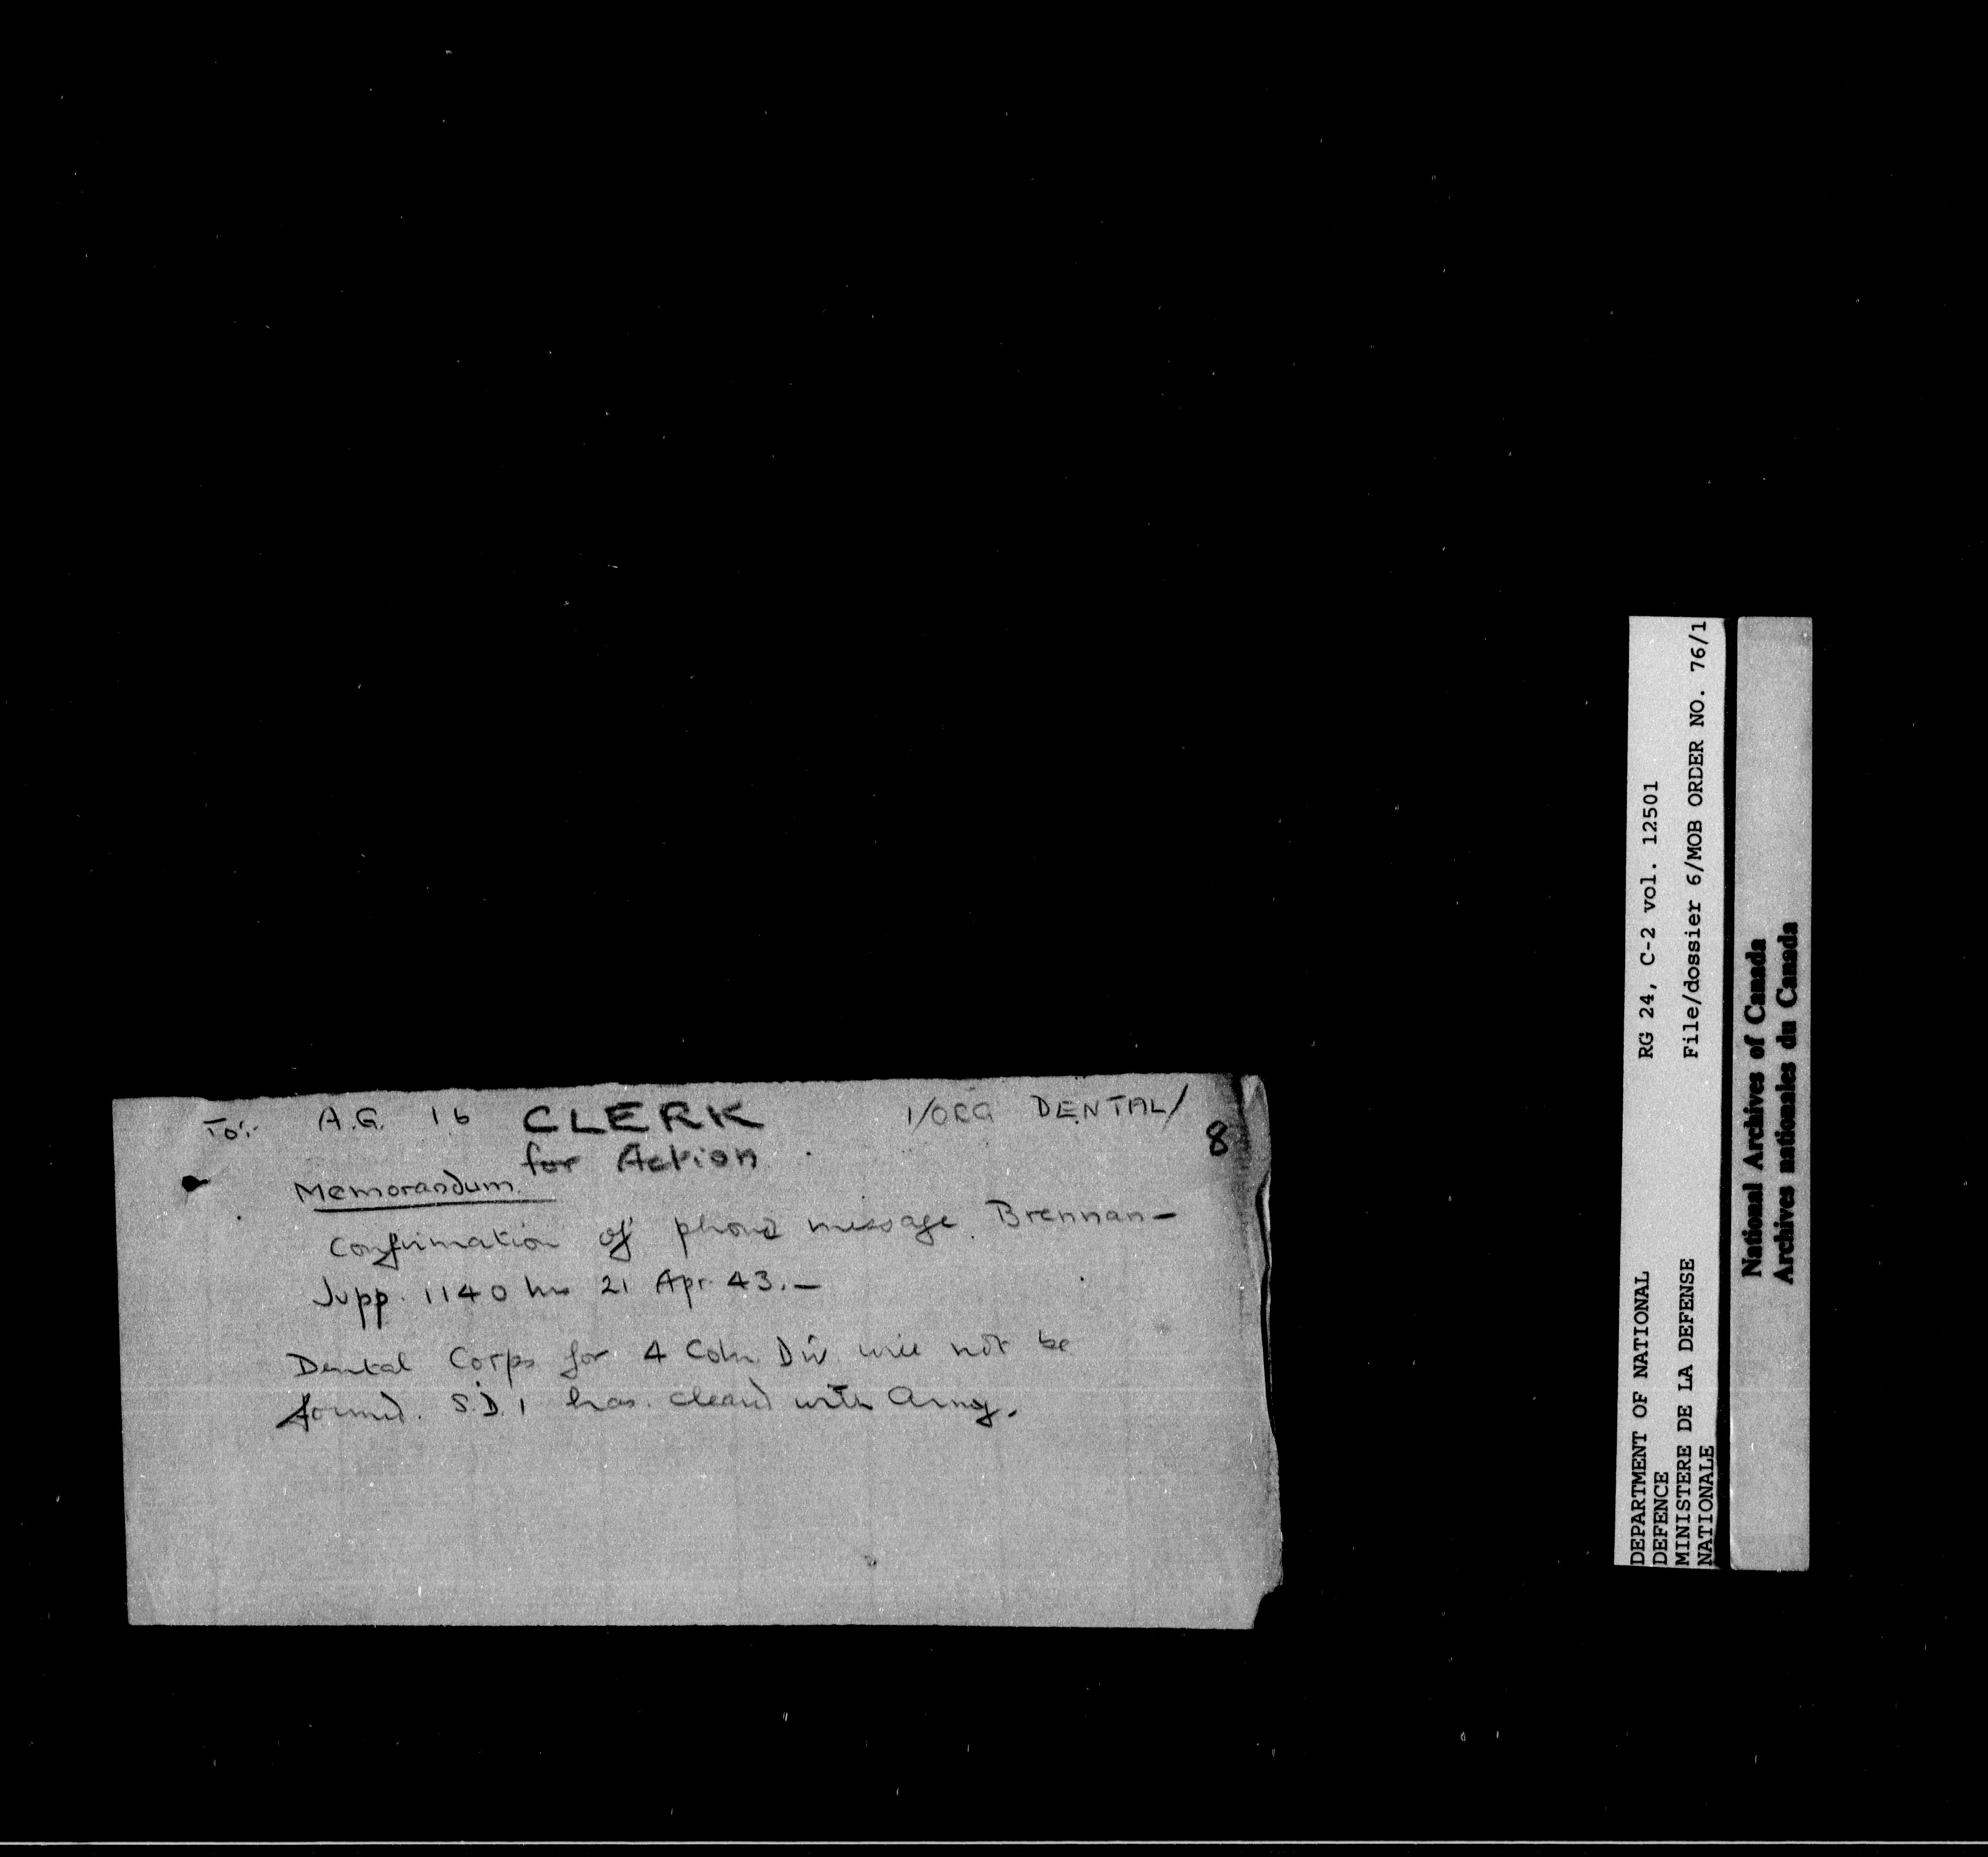 To:- A.G. 1b CLERK 1/ORG DENTAL/ 8
for Action
Memorandum
Confirmation of phone message Brennan -
Jupp. 1140 hrs 21 Apr. 43. -
Dental Corps for 4 Cdn Div will not be
formed. S.D. 1 has cleared with Army.
DEPARTMENT OF NATIONAL
DEFENCE
MINISTERE DE LA DEFENSE
NATIONALE
RG 24, C-2 vol. 12501
File/dossier 6/MOB ORDER NO. 76/1
National Archives of Canada
Archives nationales du Canada